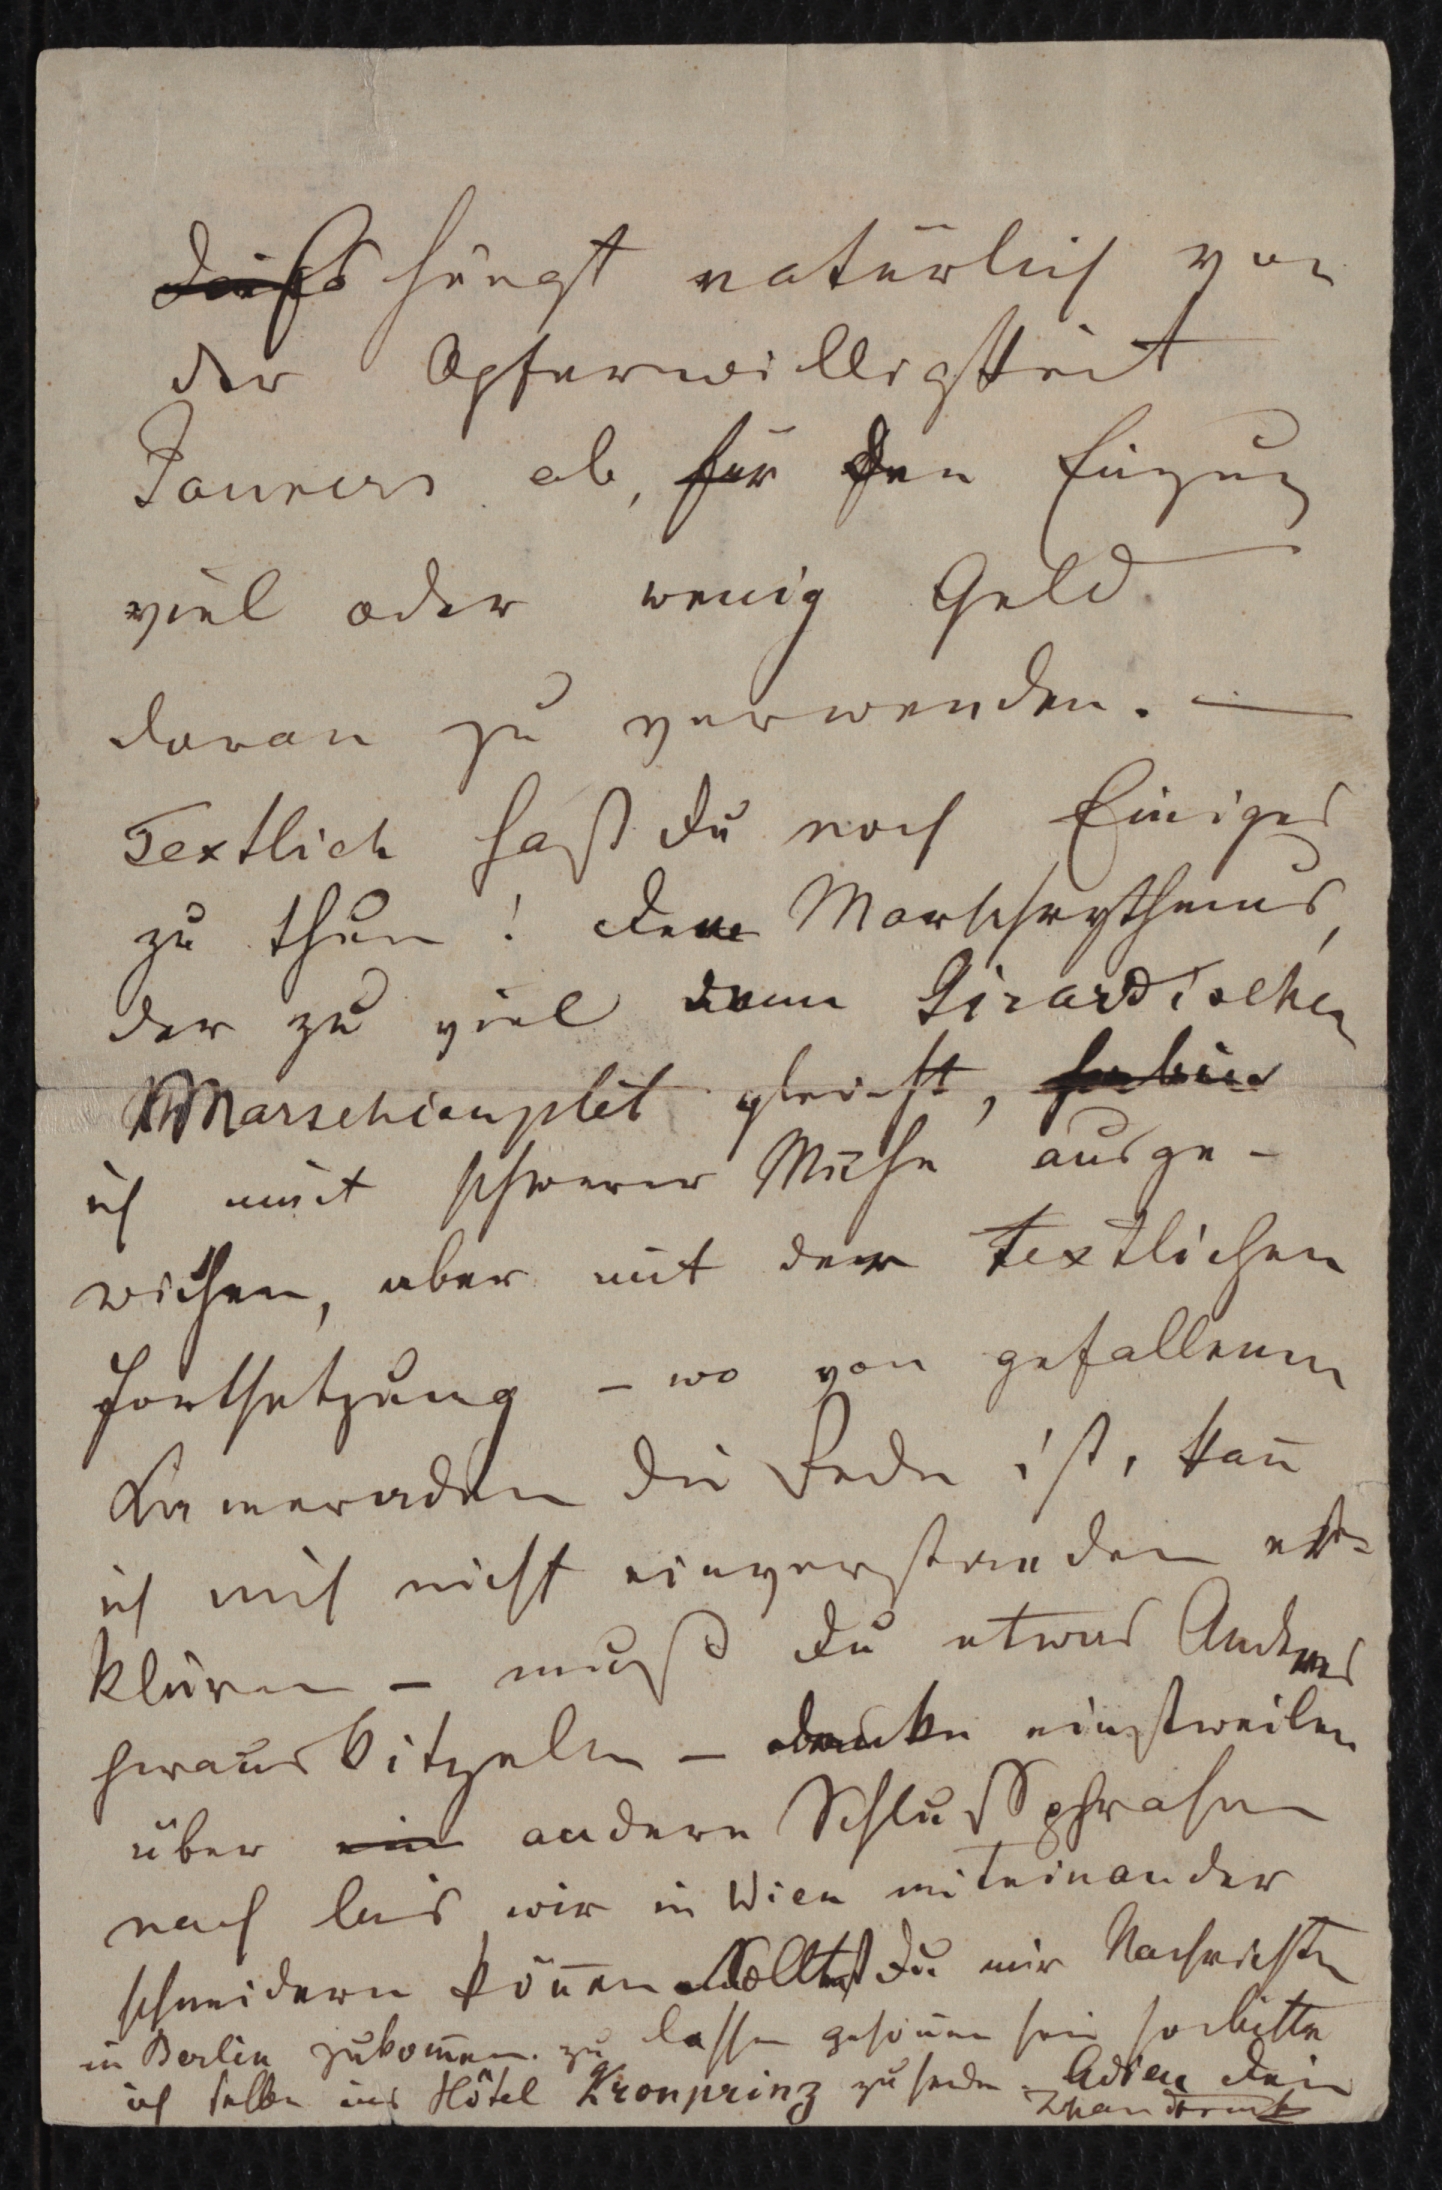 dieß hängt natürlich von
der Opferwilligkeit
Jauners ab, für den Einzug
viel oder wenig Geld
daran zu verwenden. —
Textlich hast du noch Einiges
zu thun! Dem Marschrythmus,
der zu viel dem Girardischen
Marschcouplet gleicht,
ich mit schwerer Mühe ausge-
wichen, aber mit der textlichen
Fortsetzung – wo von gefallenen
Kameraden die Rede ist, kan̄
ich mich nicht einverstanden er-
klären – mußt du etwas Anderes
herauskitzeln – denke einstweilen
über ein andere Schlußphrasen
nach bis wir in Wien miteinander
schneidern kön̄en. Solltest du mir Nachrichten
in Berlin zukom̄en zu lassen geson̄en sein so bitte
ich selbe ins Hôtel Kronprinz zu senden. Adieu dein